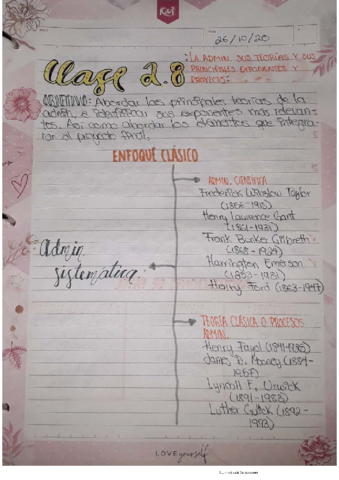 26/10/20
Clase 2.8
: LA ADMIN. SUS TEORÍAS Y SUS
PRINCIPALES EXPONENTES Y
PROYECTO:
OBJETIVO: Abordar las principales teorías de la
admón. e identificar sus exponentes más relevan-
tes. Así como abordar los elementos que integra-
rán al proyecto final.
ENFOQUE CLÁSICO
ADMIN. CIENTÍFICA
Frederick Winslow Taylor
(1856-1915)
Henry Lawrence Gant
(1861-1931)
Frank Bunker Gilbreth
(1868-1924)
Harrington Emerson
(1853-1931)
Henry Ford (1863-1947)
Admin
sistemática:
TEORÍA CLÁSICA O PROCESOS
ADMIN.
Henry Fayol (1841-1925)
James D. Mooney (1884-
1957)
Lyndall F. Urwick
(1891-1983)
Luther Gulick (1892-
1993)
LOVE yourself